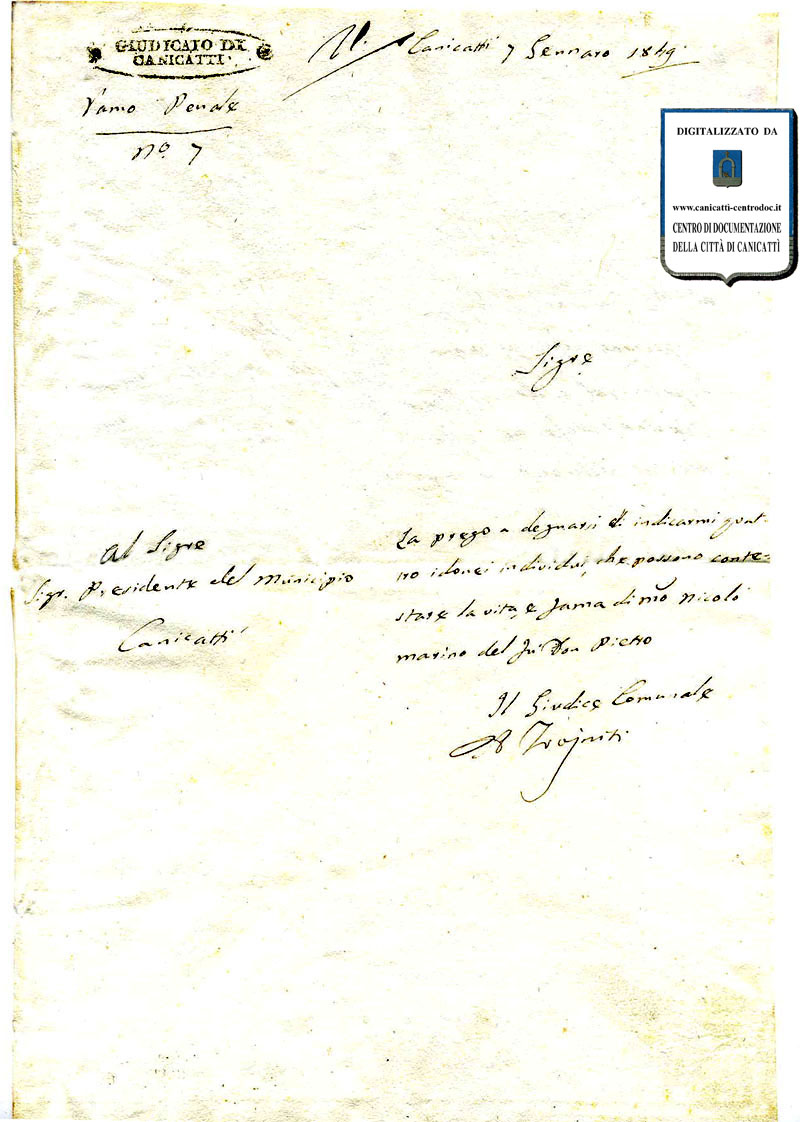 GIUDICATO DI
CANICATTI
Canicatti 7 Gennaro 1849
Ramo Penale
Nº 7
DIGITALIZZATO DA
www.canicatti-centrodoc.it
CENTRO DI DOCUMENTAZIONE
DELLA CITTÀ DI CANICATTÌ
Sigre
Al Sigre
Sigr. Presidente del Municipio
Canicatti
La prego a degnarsi di indicarmi quat-
tro idonei individui, che possono conte-
stare la vita, e fama di Nicolò
Marino del fu Don Pietro
Il Giudice Comunale